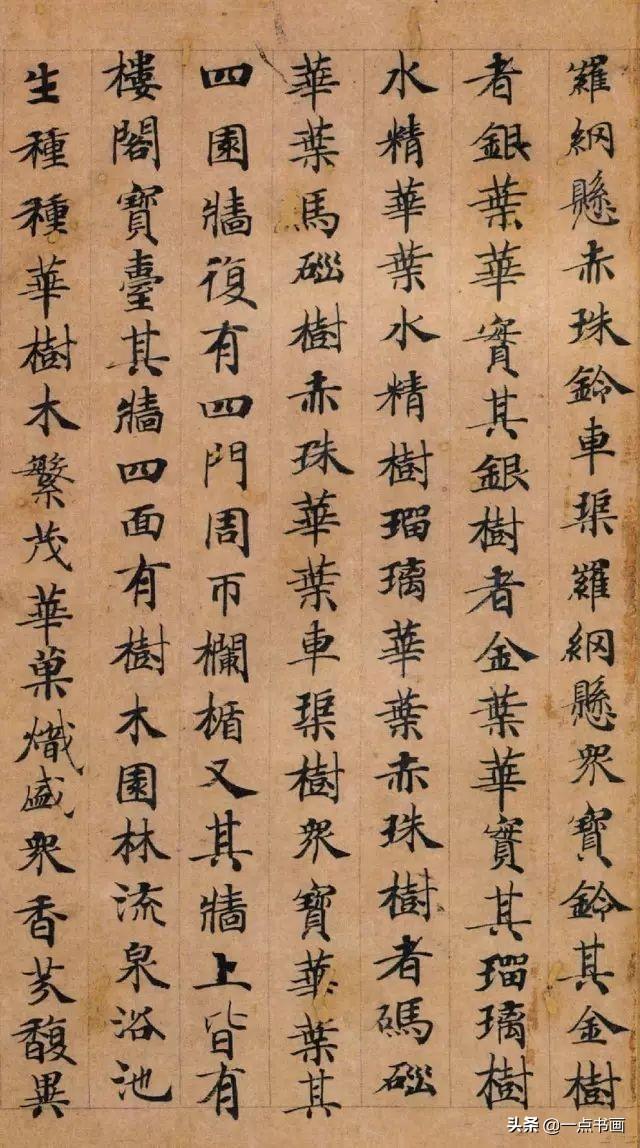 羅網懸赤珠鈴車璖羅網懸衆寶鈴其金樹
者銀葉華實其銀樹者金葉華實其瑠璃樹
水精華葉水精樹瑠璃華葉赤珠樹者碼磁
華葉馬磁樹赤珠華葉車璖樹衆寶華葉其
四園牆復有四門周帀欄楯又其牆上皆有
樓閣寶臺其牆四面有樹木園林流泉浴池
生種種華樹木繁茂華菓熾盛衆香芬馥異
头条 @一点书画